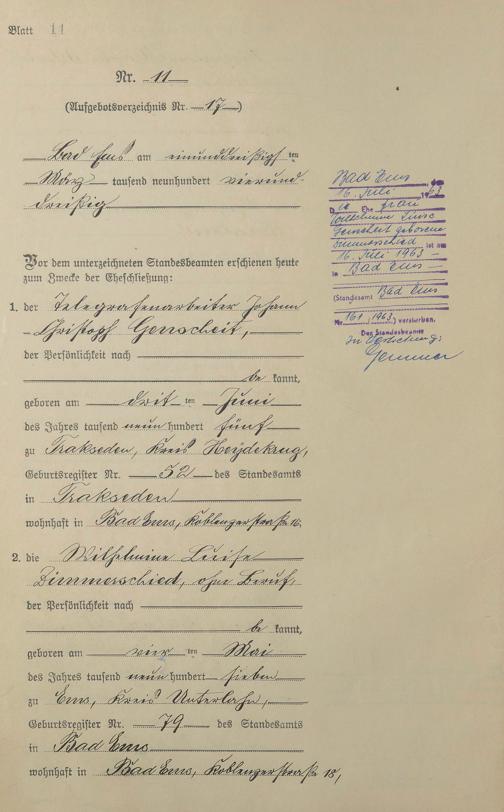 Blatt 11
Nr. 11
(Aufgebotsverzeichnis Nr. 17)
Bad Ems am einunddreißigsten
März tausend neunhundert vierund-
dreißig
Vor dem unterzeichneten Standesbeamten erschienen heute
zum Zwecke der Eheschließung:
1. der Telegrafenarbeiter Johann
Christoph Genscheit,
der Persönlichkeit nach
be kannt,
geboren am dritten Juni
des Jahres tausend neunhundert fünf
zu Trakseden, Kreis Heydekrug,
Geburtsregister Nr. 52 des Standesamts
in Trakseden
wohnhaft in Bad Ems, Koblenzerstraße 16,
2. die Wilhelmine Luise
Zimmerschied, ohne Beruf,
der Persönlichkeit nach
be kannt,
geboren am vierten Mai
des Jahres tausend neunhundert sieben
zu Ems, Kreis Unterlahn,
Geburtsregister Nr. 79 des Standesamts
in Bad Ems
wohnhaft in Bad Ems, Koblenzerstraße 18,
Bad Ems den
16. Juli 1963
Die Ehefrau
Wilhelmine Luise
Genscheit geborene
Zimmerschied ist am
16. Juli 1963
in Bad Ems
(Standesamt Bad Ems
Nr. 161, 1963) verstorben.
Der Standesbeamte
In Vertretung: